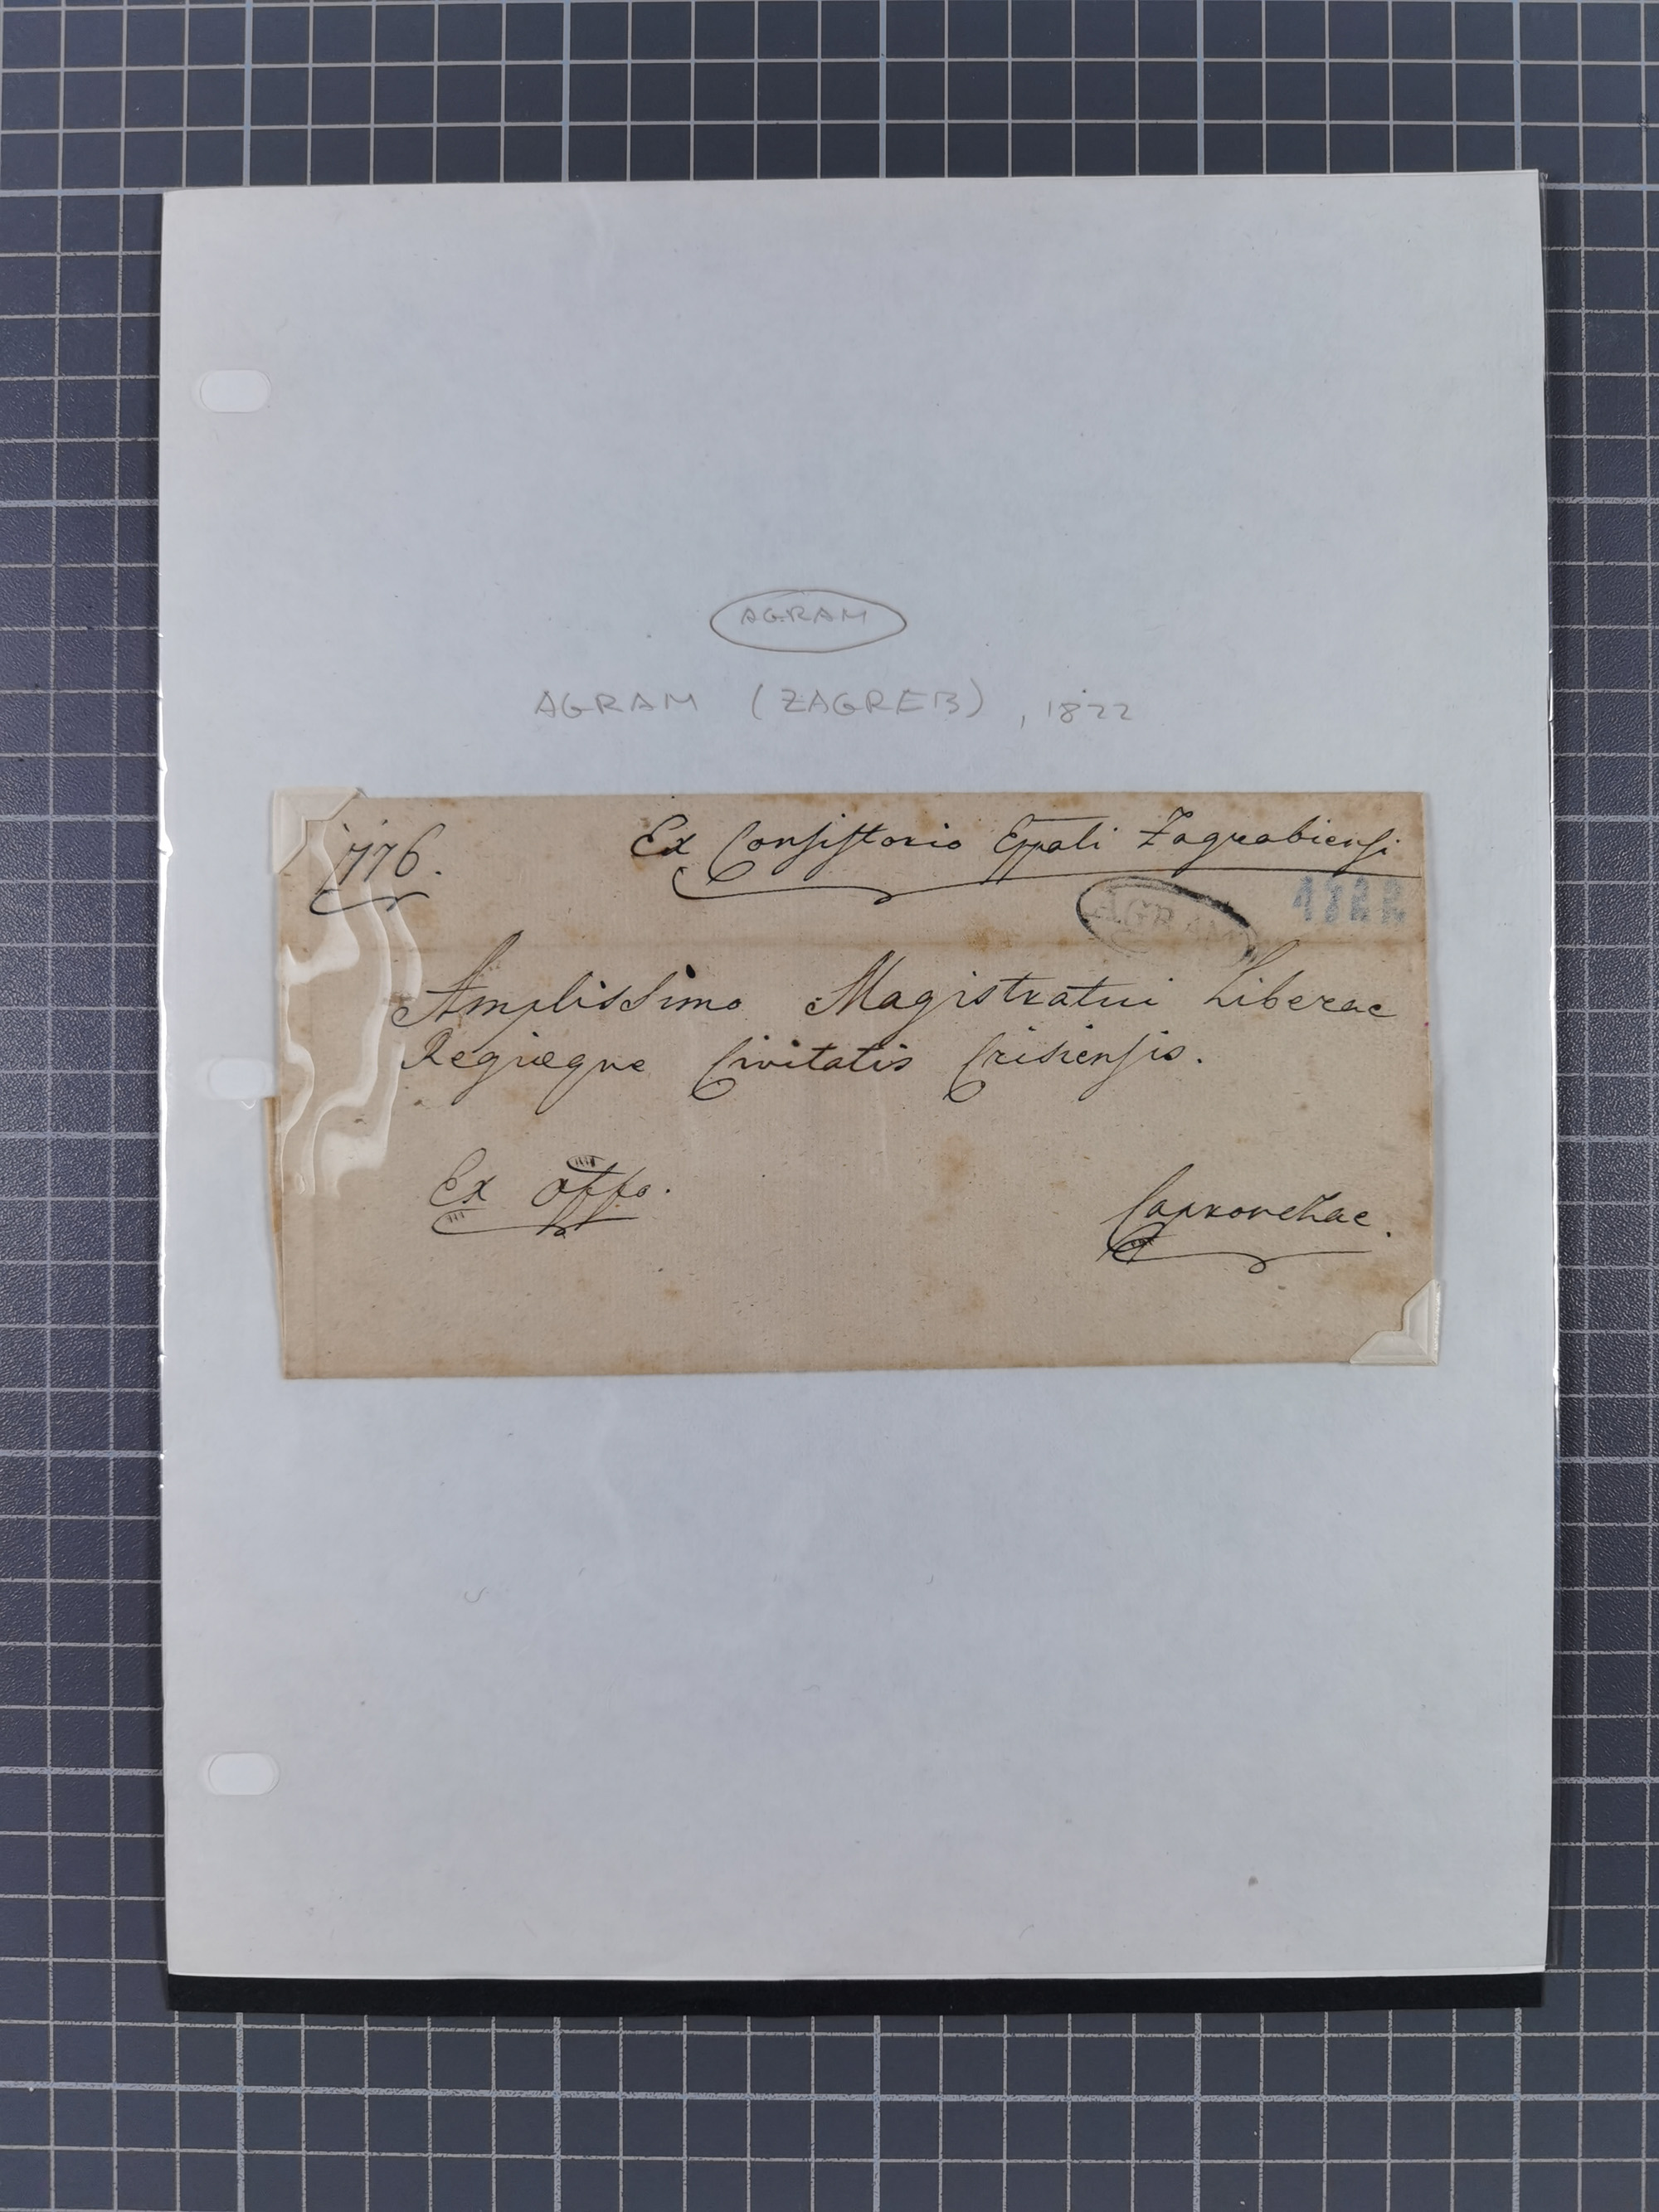 AGRAM
AGRAM (ZAGREB), 1822
776.
Ex Consistorio Eppali Zagrabiensi
AGRAM
1822
Amplissimo Magistratui Liberae
Regiaeque Civitatis Crisiensis.
Ex offo.
Capronchae.